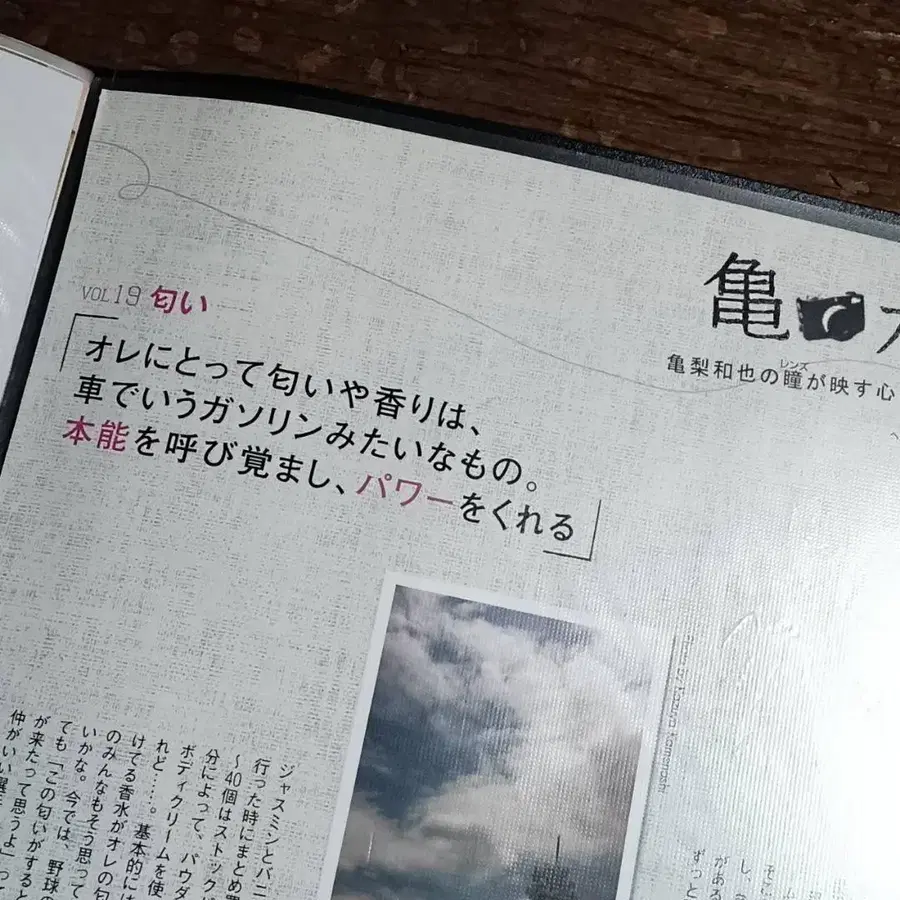 VOL19 匂い
「オレにとって匂いや香りは、
車でいうガソリンみたいなもの。
本能を呼び覚まし、パワーをくれる」
亀
亀梨和也の瞳が映す心
レンズ
Photo by Kazuya Kamenashi
ジャスミンとバニ
行った時にまとめ買
〜40個はストック
分によって、パウダ
ボディクリームを使
れど……。基本的には
けてる香水がオレの匂
のみんなもそう思って
いかな。今では、野球の
ても「この匂いがすると
が来たって思うよ」って
仲がいい選
そこ
し、
がある
ずっと